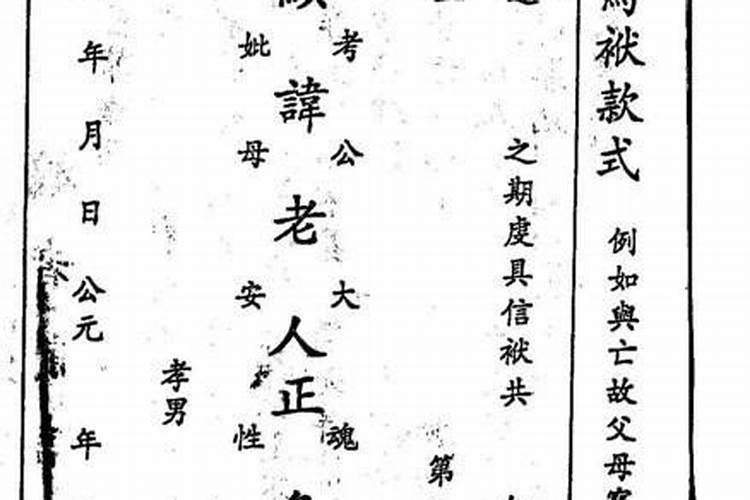 袱款式 例如與亡故父母
之期虔具信袱共
第
考公大魂
諱老人正
妣母安性
孝男
年月日公元年